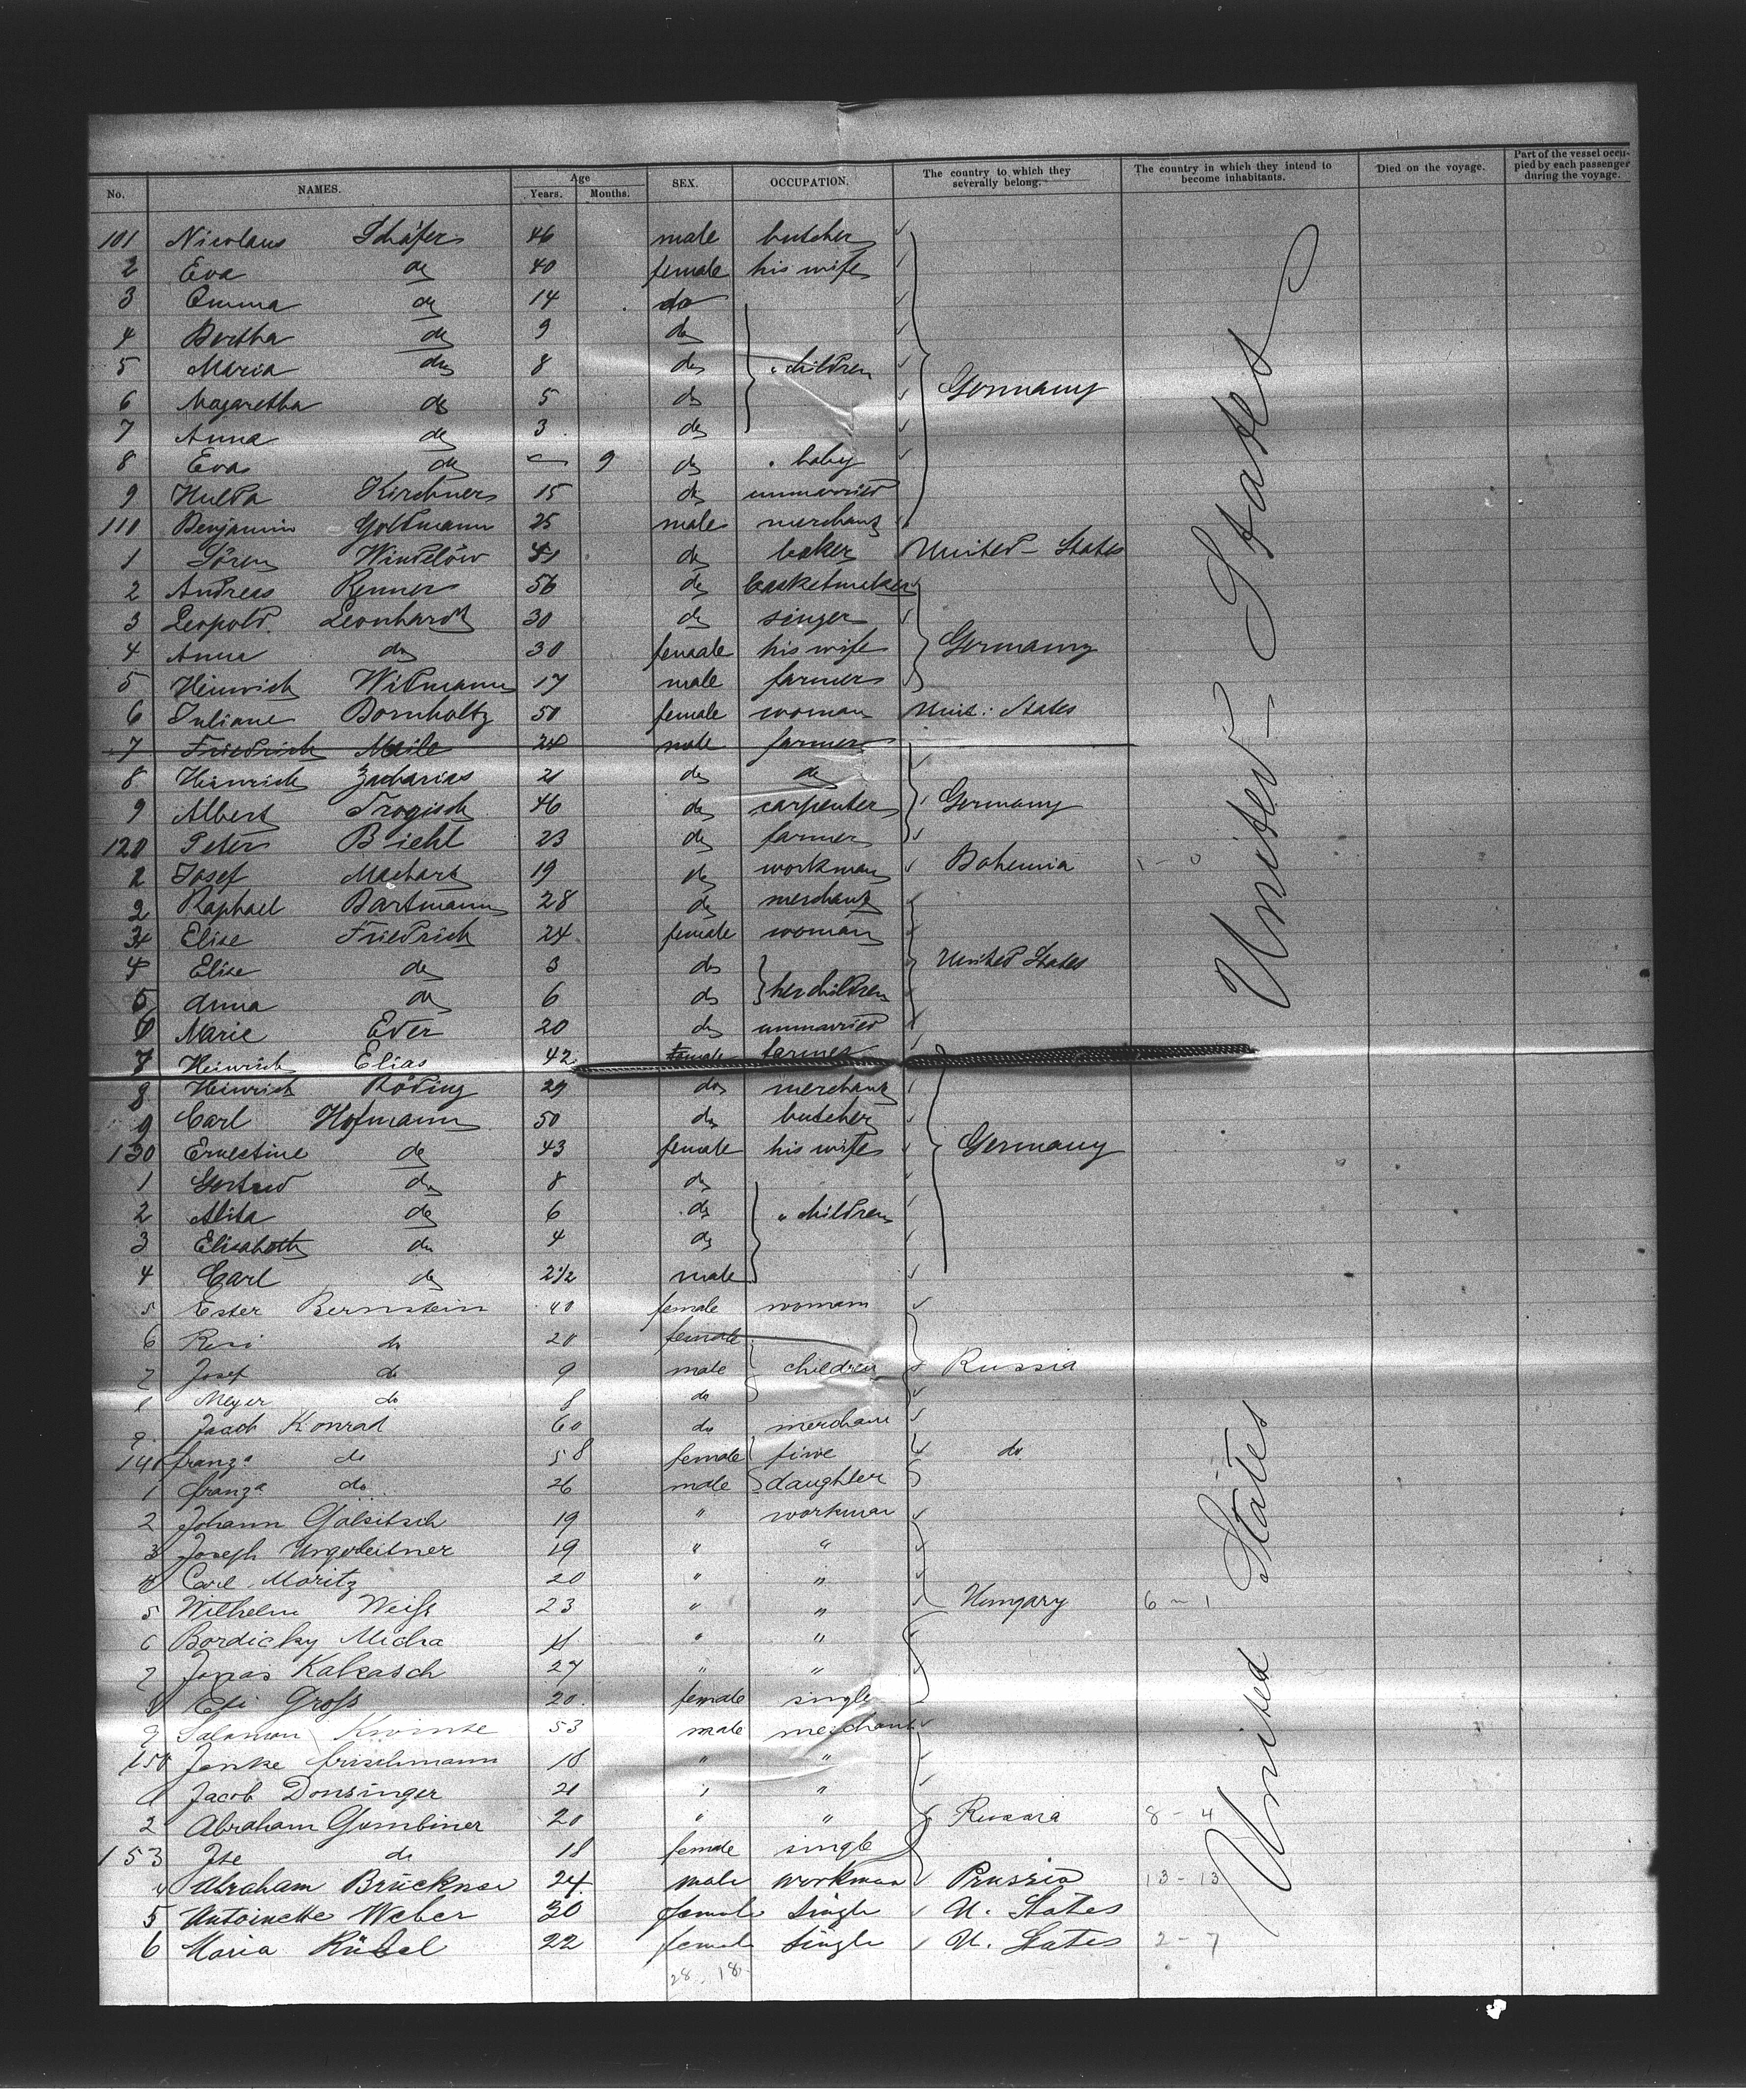 No. NAMES. Age Years. Months. SEX. OCCUPATION. The country to which they severally belong. The country in which they intend to become inhabitants. Died on the voyage. Part of the vessel occupied by each passenger during the voyage.
101 Nicolaus Schäfer 46 male butcher
2 Eva do 40 female his wife
3 Emma do 14 do
4 Bertha do 9 do
5 Maria do 8 do " children
6 Magaretha do 5 do Germany
7 Anna do 3 do
8 Eva do — 9 do " baby
9 Hulda Kirchner 15 do unmarried
110 Benjamin Goldmann 25 male merchant
1 Sören Windslöw 41 do baker United-States
2 Andreas Renner 56 do basketmaker
3 Leopold Leonhardt 30 do singer
4 Anna do 30 female his wife Germany
5 Heinrich Widmann 17 male farmer
6 Juliane Bornholtz 50 female woman Unit: States
7 Friedrich Meile 24 male farmer
8 Heinrich Zacharias 21 do do
9 Albert Trogisch 46 do carpenter Germany
120 Peter Biehl 23 do farmer
2 Josef Machart 19 do workman Bohemia 1 - 0
2 Raphael Bartmann 28 do merchant
3 Elise Friedrich 24 female woman
4 Elise do 3 do United States
5 Anna do 6 do her children
6 Marie Eder 20 do unmarried
7 Heinrich Elias 42 male farmer
8 Heinrich Röding 29 do merchant
9 Carl Hofmann 50 do butcher
130 Ernestine do 43 female his wife Germany
1 Gertrud do 8 do
2 Alita do 6 do " children
3 Elisabeth do 4 do
4 Carl do 2 1/2 male
5 Ester Bernstein 40 female woman
6 Resi do 20 female
7 Josef do 9 male children Russia
8 Meyer do 8 do
9 Jacob Konrad 60 do merchant
140 franza do 58 female fiwe do
1 franza do 26 male daughter
2 Johann Golsitsch 19 " workman
3 Joseph Ungerleitner 19 " "
4 Carl Moritz 20 " "
5 Wilhelm Weiß 23 " " Hungary 6 - 1
6 Bordicky Micha 41 " "
7 Jonas Kalkasch 27 " "
8 Eti Groß 20 female single
9 Salamon Kwinte 53 male merchant
150 Janke frischmann 18 " "
1 Jacob Donsinger 21 " "
2 Abraham Gumbiner 20 " " Russia 8 - 4
153 Ite do 18 female single
4 Abraham Brückner 24 male workman Prussia 13 - 13
5 Antoinette Weber 30 female Single U. States
6 Maria Rübel 22 female Single U. States 2 - 7
28. 18
United-States
United States